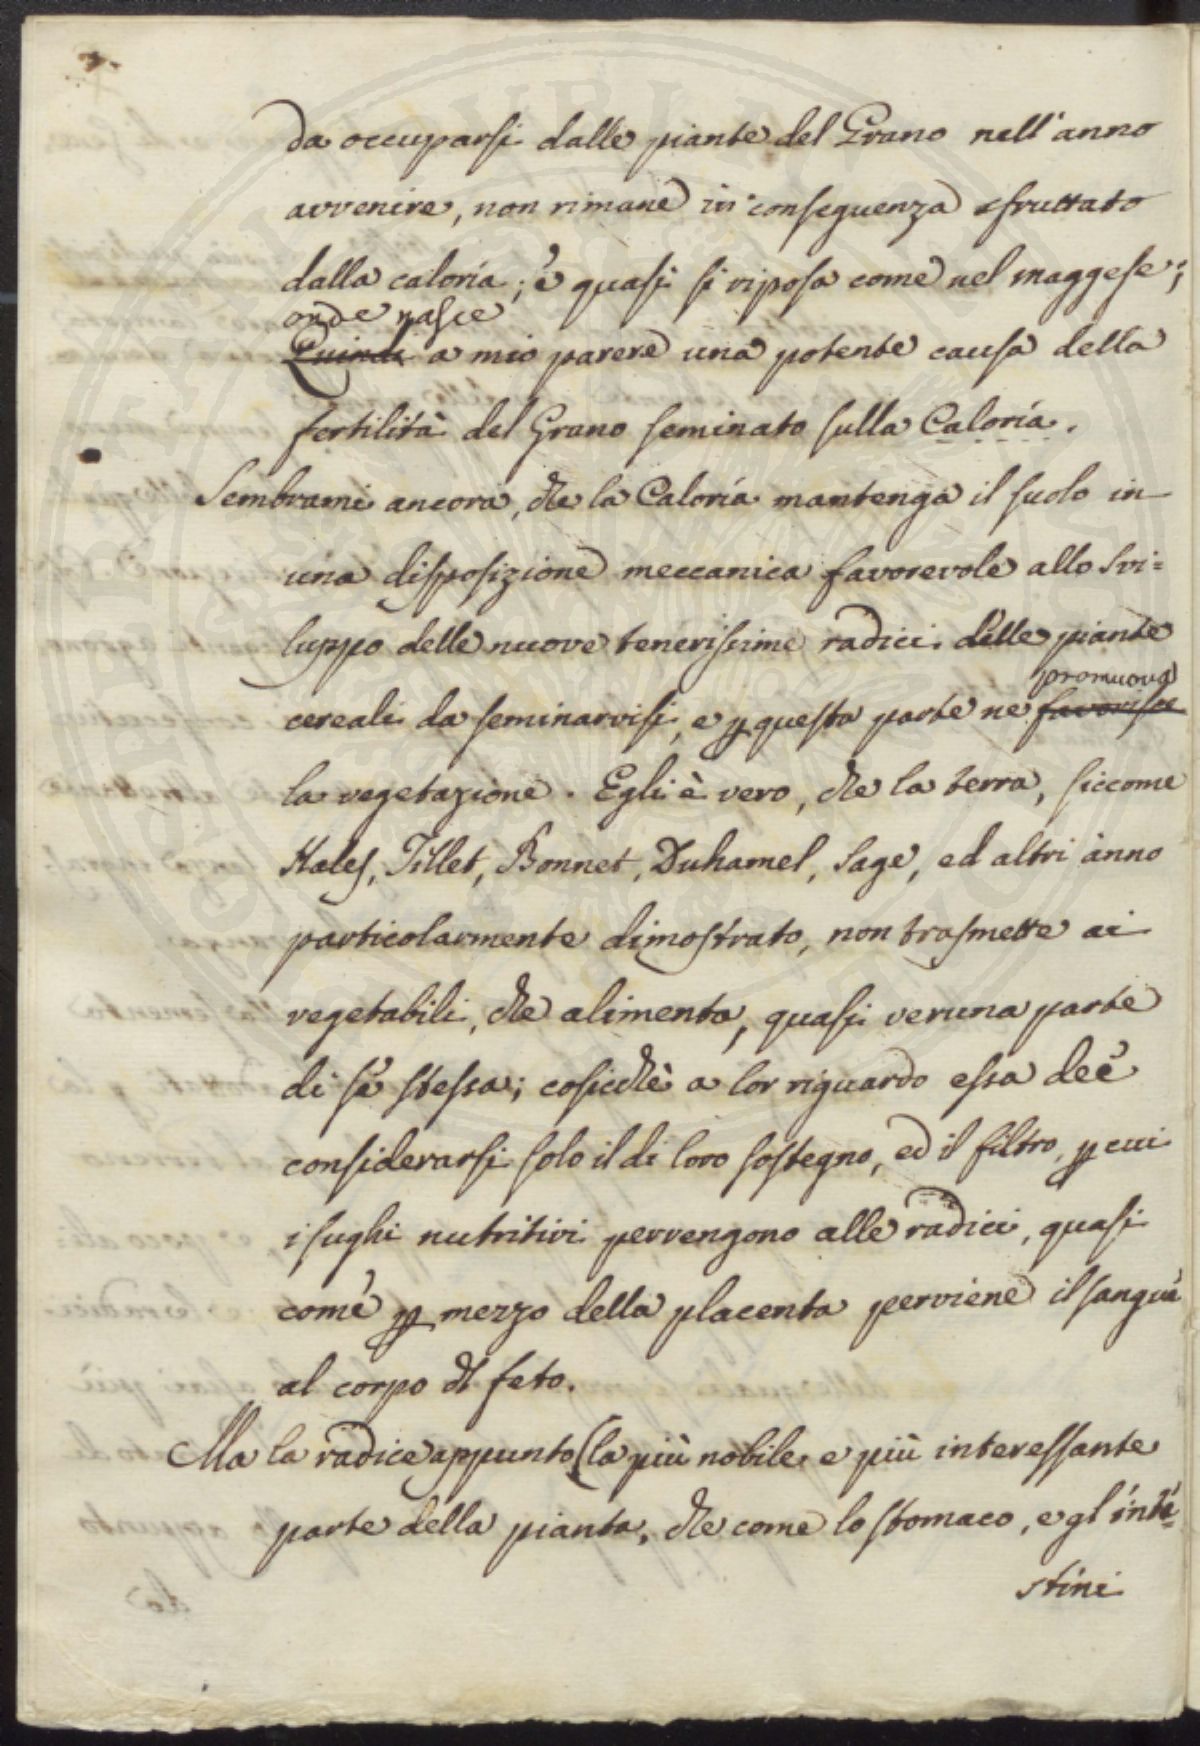 da occuparsi dalle piante del Grano nell'anno
avvenire, non rimane in conseguenza sfruttato
dalla caloría; è quasi si riposa come nel maggese;
onde nasce
Quindi a mio parere una potente causa della
fertilità del Grano seminato sulla Caloría.
Sembrami ancora, che la Caloría mantenga il suolo in
una disposizione meccanica favorevole allo svi=
luppo delle nuove tenerissime radici delle piante
promuova
cereali da seminarvisi, e p questa parte ne favorisce
la vegetazione. Egli è vero, che la terra, siccome
Hales, Tillet, Bonnet, Duhamel, Sage, ed altri ànno
particolarmente dimostrato, non trasmette ai
vegetabili, che alimenta, quasi veruna parte
di sè stessa; cosicchè a lor riguardo essa deè
considerarsi solo il di loro sostegno, ed il filtro, p cui
i sughi nutritivi pervengono alle radici, quasi
comè p mezzo della placenta perviene il sangue
al corpo dl feto.
Ma la radice appunto (la più nobile e più interessante
parte della pianta, che come lo stomaco, e gl'inte=
stini